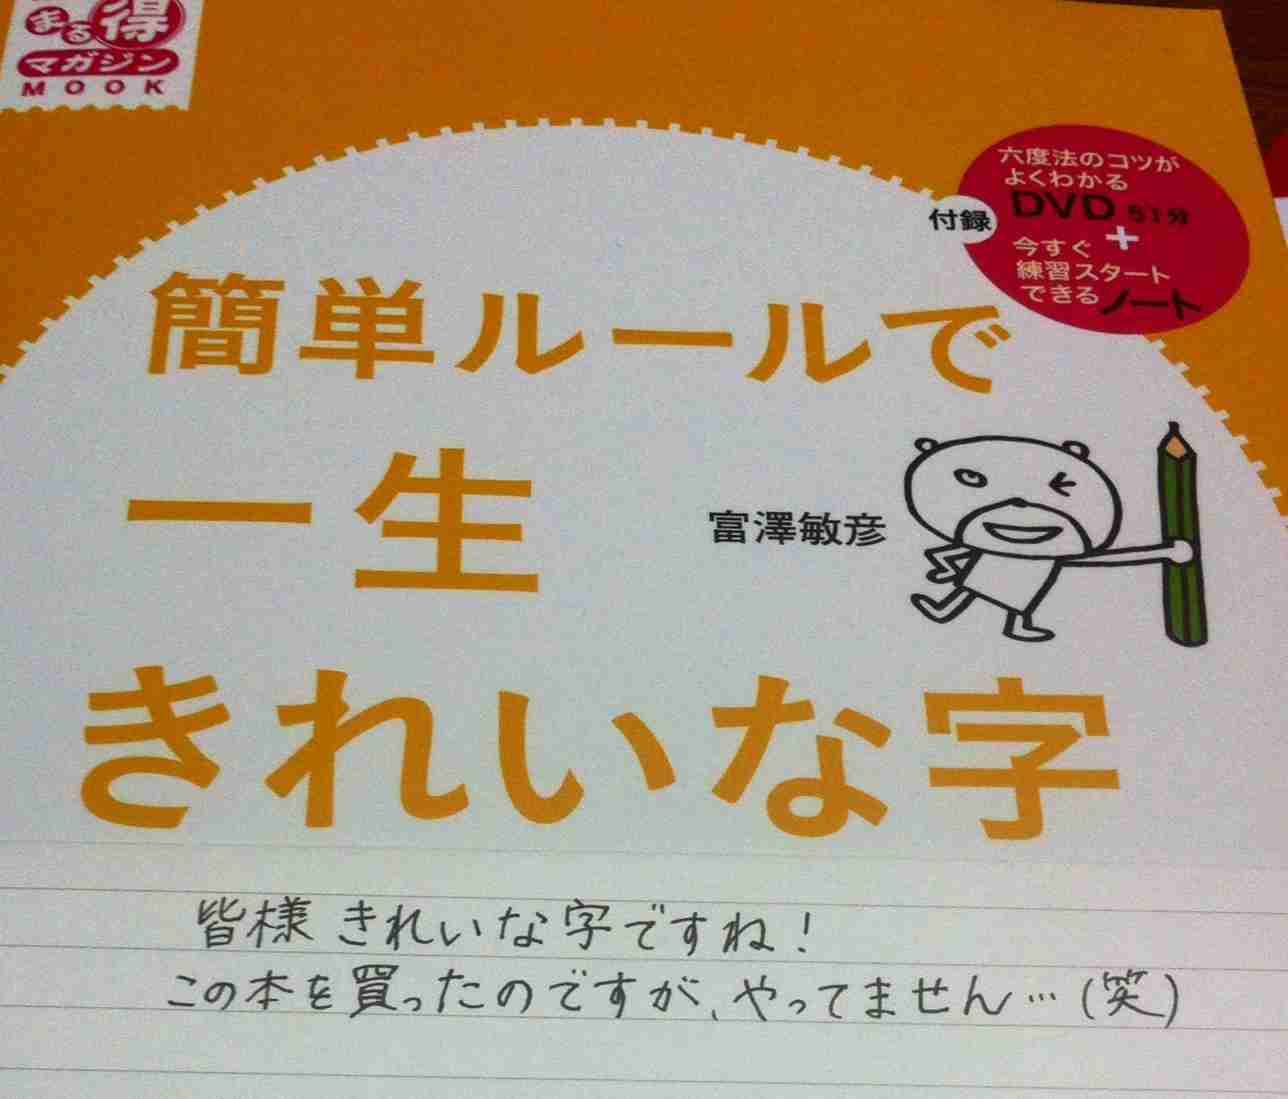 まる得
マガジン
MOOK
六度法のコツが
よくわかる
DVD 51分
付録
+
今すぐ
練習スタート
できるノート
簡単ルールで
一生
富澤敏彦
きれいな字
皆様 きれいな字ですね!
この本を買ったのですが、やってません…(笑)